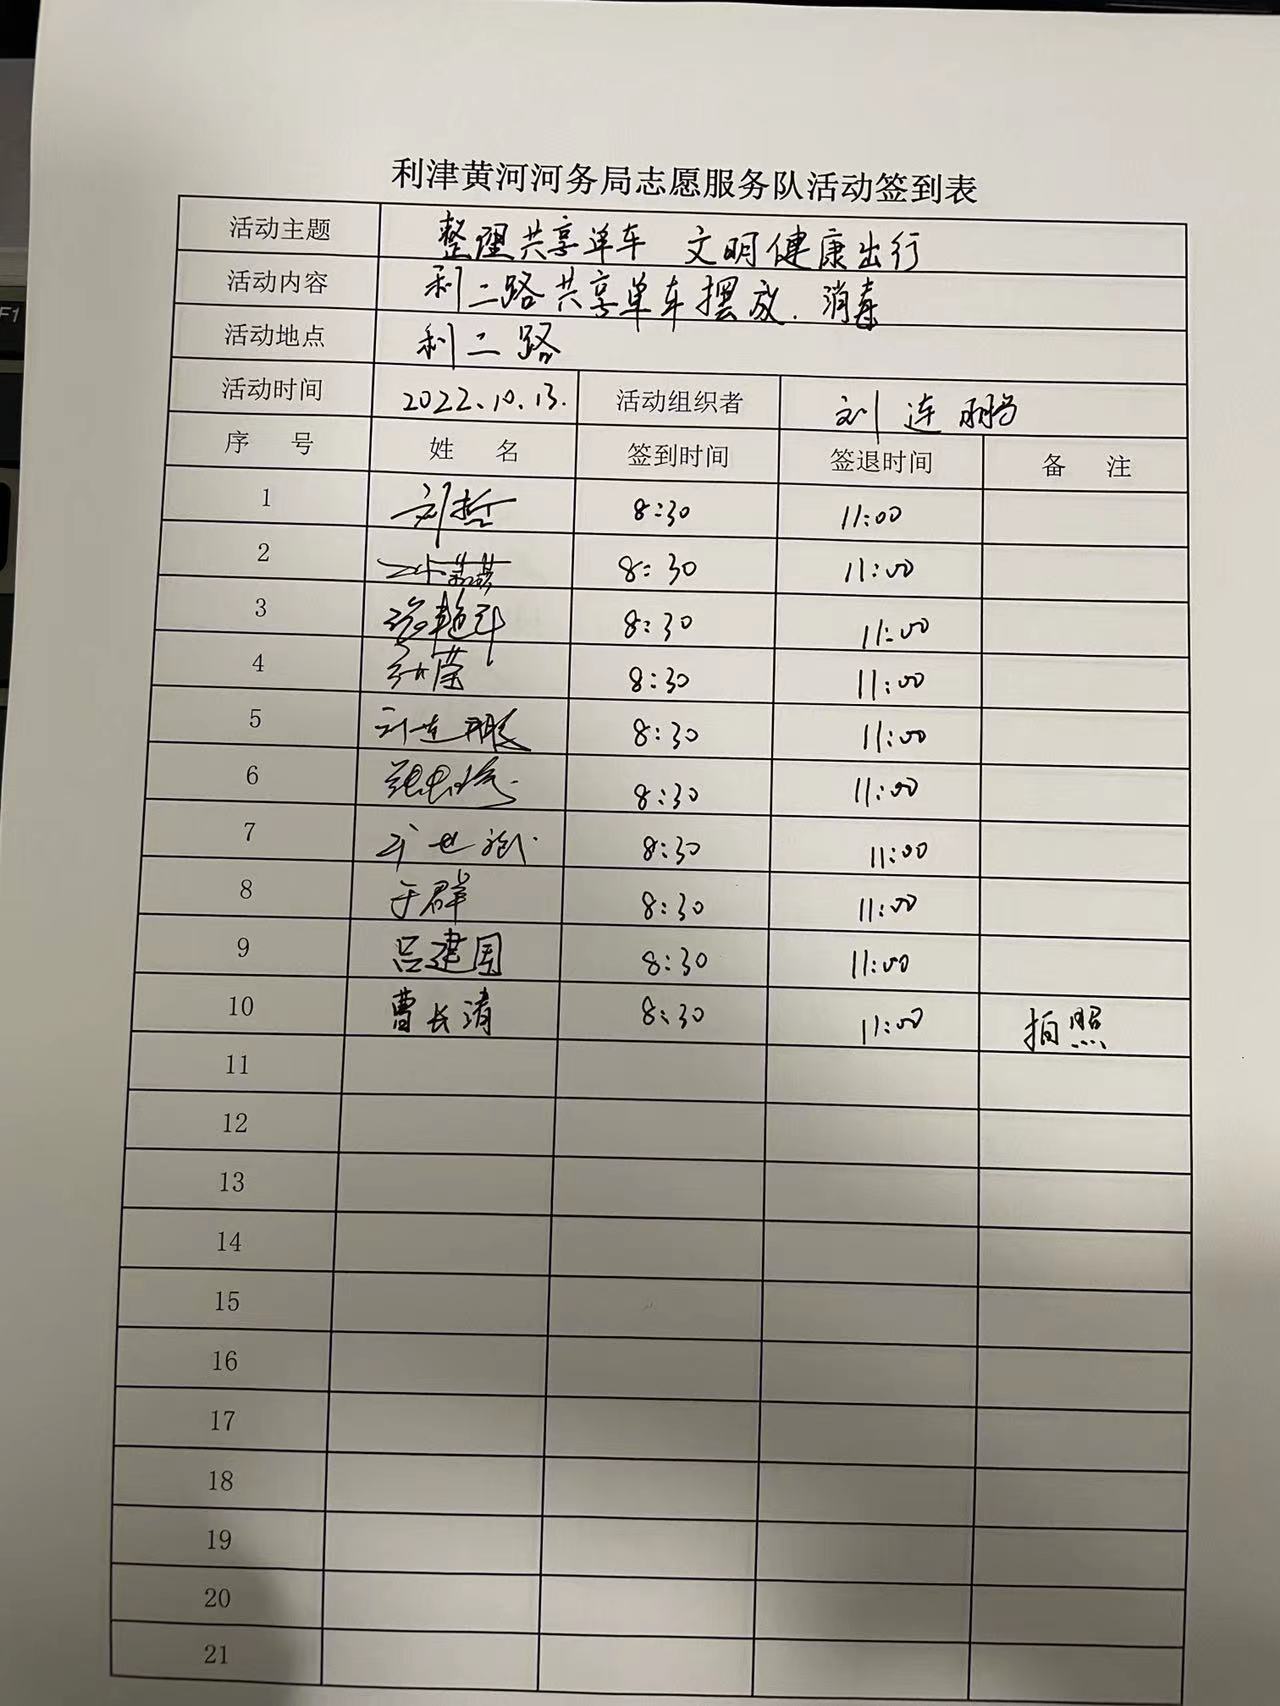 F1
利津黄河河务局志愿服务队活动签到表
活动主题 整理共享单车 文明健康出行
活动内容 利二路共享单车摆放、消毒
活动地点 利二路
活动时间 2022.10.13. 活动组织者 刘连鹏
序 号 姓 名 签到时间 签退时间 备 注
1 刘哲 8:30 11:00
2 8:30 11:00
3 8:30 11:00
4 8:30 11:00
5 刘连鹏 8:30 11:00
6 8:30 11:00
7 8:30 11:00
8 于群 8:30 11:00
9 吕建国 8:30 11:00
10 曹长清 8:30 11:00 拍照
11
12
13
14
15
16
17
18
19
20
21